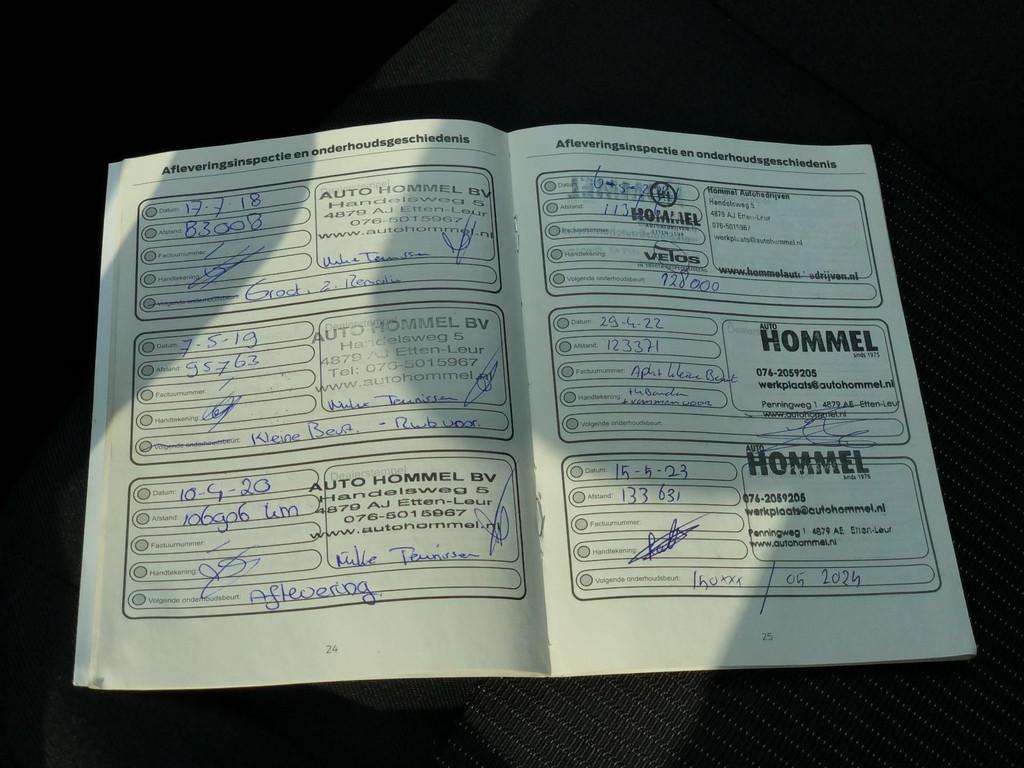 Afleveringsinspectie en onderhoudsgeschiedenis
Datum: 17-7-18
Afstand: 83008
Factuurnummer:
Handtekening:
Volgende onderhoudsbeurt: Groot, 2. Remolie
AUTO HOMMEL BV
Handelsweg 5
4879 AJ Etten-Leur
076-5015967
www.autohommel.nl
Mike Teunissen
Datum: 7-5-19
Afstand: 95763
Factuurnummer:
Handtekening:
Volgende onderhoudsbeurt: Kleine Beurt. - Rwb voor.
Dealerstempel
AUTO HOMMEL BV
Handelsweg 5
4879 AJ Etten-Leur
Tel: 076-5015967
www.autohommel.nl
Mike Teunissen
Datum: 10-4-20
Afstand: 106906 km
Factuurnummer:
Handtekening:
Volgende onderhoudsbeurt: Aflevering.
Dealerstempel
AUTO HOMMEL BV
Handelsweg 5
4879 AJ Etten-Leur
076-5015967
www.autohommel.nl
Mike Teunissen
24
Afleveringsinspectie en onderhoudsgeschiedenis
Datum: 6-5-
Afstand: 113
Factuurnummer:
Handtekening:
Volgende onderhoudsbeurt: 128000
HOMMEL
ETTEN-LEUR
VELOS
Hommel Autobedrijven
Handelsweg 5
4879 AJ Etten-Leur
076-5015967
werkplaats@autohommel.nl
www.hommelautobedrijven.nl
Datum: 29-4-22
Afstand: 123371
Factuurnummer: Apk+ kleine Beurt
Handtekening: +4 Banden
+remmen voor
Volgende onderhoudsbeurt:
AUTO
HOMMEL
sinds 1975
076-2059205
werkplaats@autohommel.nl
Penningweg 1 4879 AE Etten-Leur
www.autohommel.nl
Datum: 15-5-23
Afstand: 133 631
Factuurnummer:
Handtekening:
Volgende onderhoudsbeurt: 150xxx / 05 2024
AUTO
HOMMEL
sinds 1975
076-2059205
werkplaats@autohommel.nl
Penningweg 1 4879 AE Etten-Leur
www.autohommel.nl
25